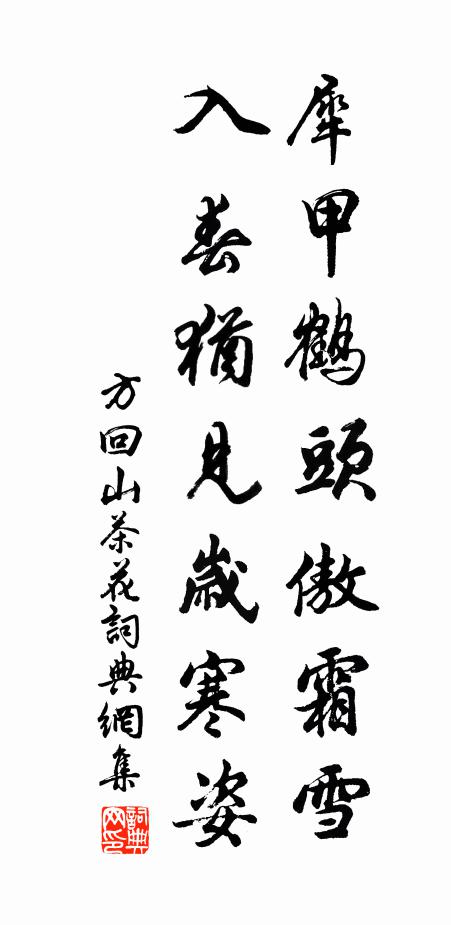 犀甲鶴頭傲霜雪
入春猶見歲寒姿
方回山茶花詞典網集
詞典網印